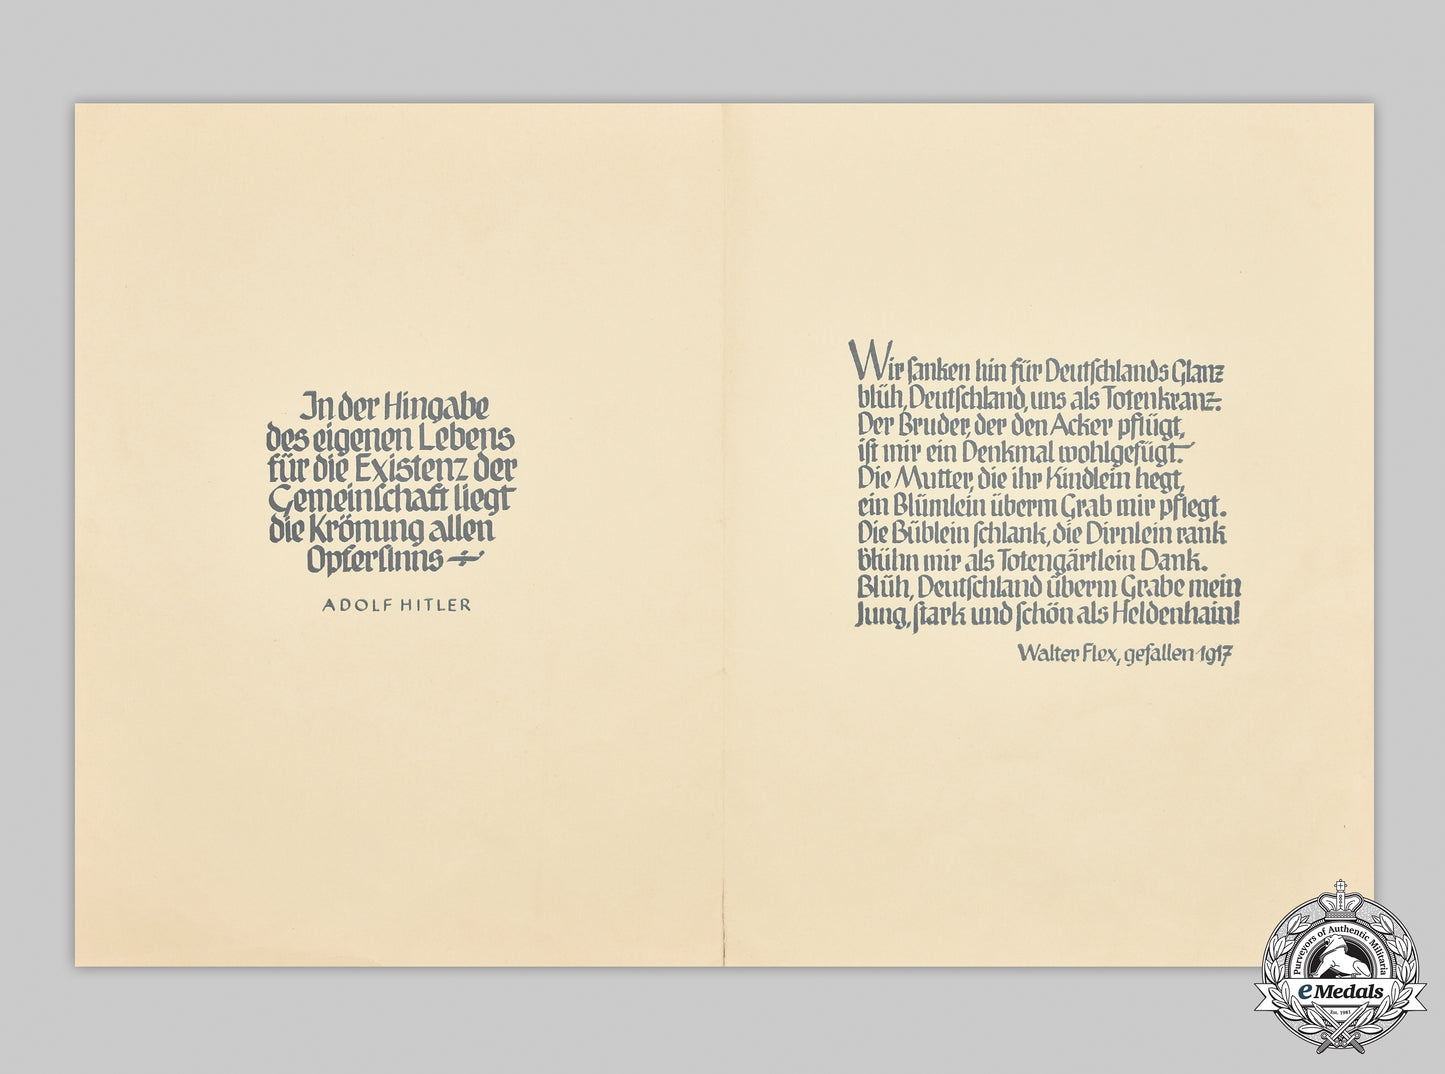 In der Hingabe
des eigenen Lebens
für die Existenz der
Gemeinschaft liegt
die Krönung allen
Opfersinns
ADOLF HITLER
Wir sanken hin für Deutschlands Glanz
blüh, Deutschland, uns als Totenkranz.
Der Bruder, der den Acker pflügt,
ist mir ein Denkmal wohlgefügt.
Die Mutter, die ihr Kindlein hegt,
ein Blümlein überm Grab mir pflegt.
Die Büblein schlank, die Dirnlein rank
blühn mir als Totengärtlein Dank.
Blüh, Deutschland überm Grabe mein
Jung, stark und schön als Heldenhain!
Walter Flex, gefallen 1917
Purveyors of Authentic Militaria
eMedals
Est. 1981